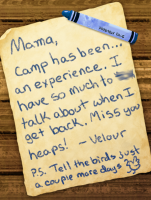 Mama,
Camp has been...
an experience. I
have so much to
talk about when I
get back. Miss you
heaps! - Velour
P.S. Tell the birds just
a couple more days